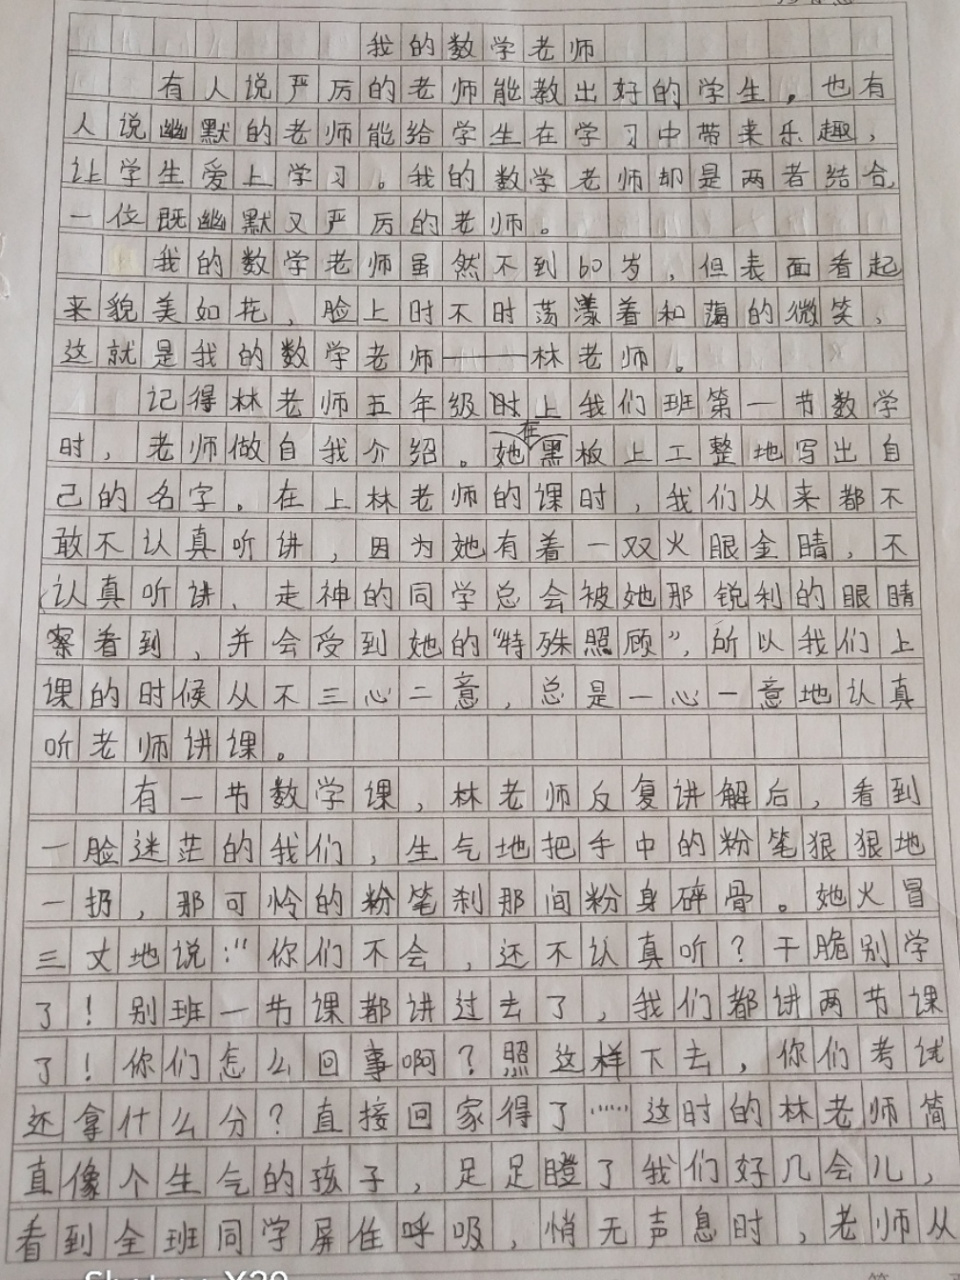 我的数学老师
有人说严厉的老师能教出好的学生，也有
人说幽默的老师能给学生在学习中带来乐趣，
让学生爱上学习。我的数学老师却是两者结合，
一位既幽默又严厉的老师。
我的数学老师虽然不到60岁，但表面看起
来貌美如花，脸上时不时荡漾着和蔼的微笑，
这就是我的数学老师——林老师。
记得林老师五年级时上我们班第一节数学
时，老师做自我介绍。她在黑板上工整地写出自
己的名字。在上林老师的课时，我们从来都不
敢不认真听讲，因为她有着一双火眼金睛，不
认真听讲、走神的同学总会被她那锐利的眼睛
察看到，并会受到她的“特殊照顾”，所以我们上
课的时候从不三心二意，总是一心一意地认真
听老师讲课。
有一节数学课，林老师反复讲解后，看到
一脸迷茫的我们，生气地把手中的粉笔狠狠地
一扔，那可怜的粉笔刹那间粉身碎骨。她火冒
三丈地说：“你们不会，还不认真听？干脆别学
了！别班一节课都讲过去了，我们都讲两节课
了！你们怎么回事啊？照这样下去，你们考试
还拿什么分？直接回家得了……这时的林老师简
直像个生气的孩子，足足瞪了我们好几会儿，
看到全班同学屏住呼吸，悄无声息时，老师从